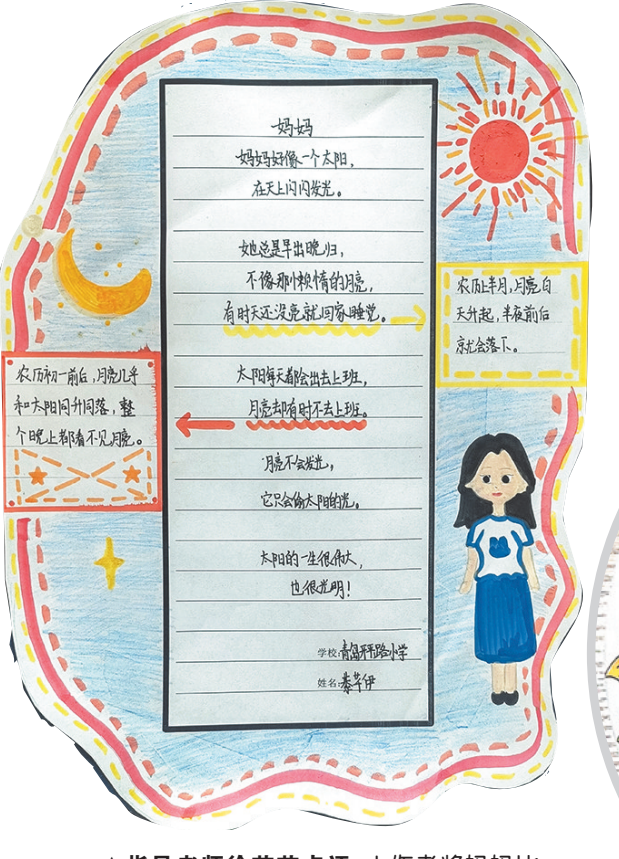 妈妈
妈妈好像一个太阳，
在天上闪闪发光。
她总是早出晚归，
不像那小懒惰的月亮，
有时天还没亮就回家睡觉。
太阳每天都会出去上班，
月亮却有时不去上班。
月亮不会发光，
它只会偷太阳的光。
太阳的一生很伟大，
也很光明！
学校：青岛平路小学
姓名：秦芊伊
农历上半月，月亮白
天升起，半夜前后
就会落下。
农历初一前后，月亮几乎
和太阳同升同落，整
个晚上都看不见月亮。